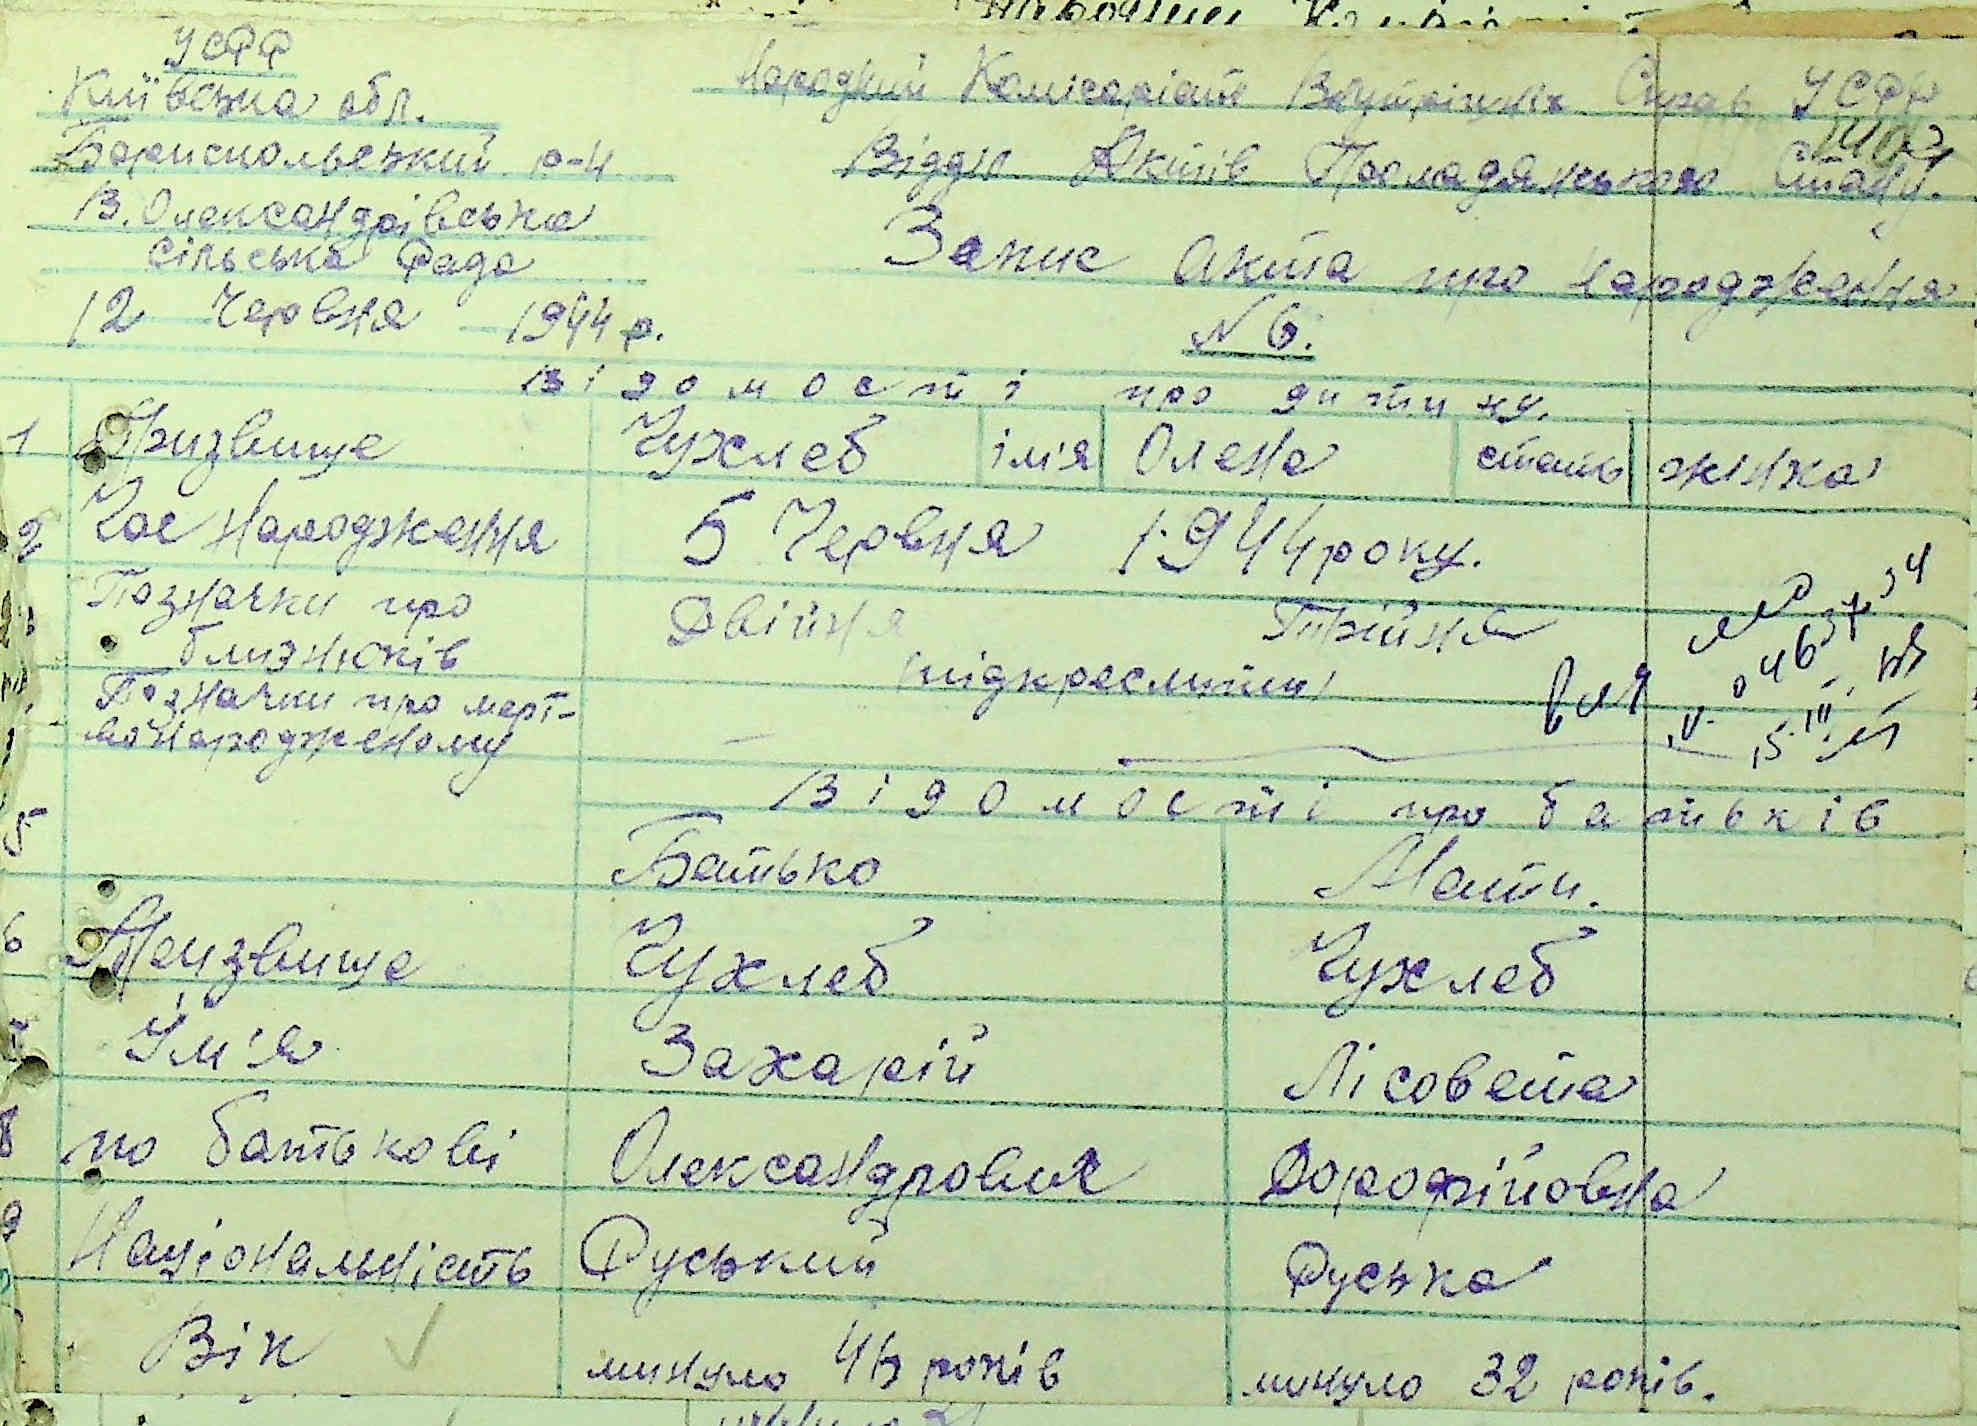 УСРР
Київська обл.
Бориспольський р-н
В. Олександрівська
сільська Рада
12 Червня 1944 р.
Народний Комісаріат Внутрішніх Справ УСРР
Відділ Актів Громадянського Стану.
Запис акта про народження
N 6.
Відомості про дитину.
1 Призвище Чухлеб ім'я Олена стать жінка
2 Час народження 5 Червня 1944 року.
Позначки про близнюків Двійня Трійня
(підкреслити)
Позначки про мерт-
вонародженому —
Відомості про батьків
5 Батько Мати.
6 Призвище Чухлеб Чухлеб
7 Ім'я Захарій Лісовета
8 по батькові Олександрович Дорофійовна
9 Національність Руський Руська
Вік минуло 46 років минуло 32 років.